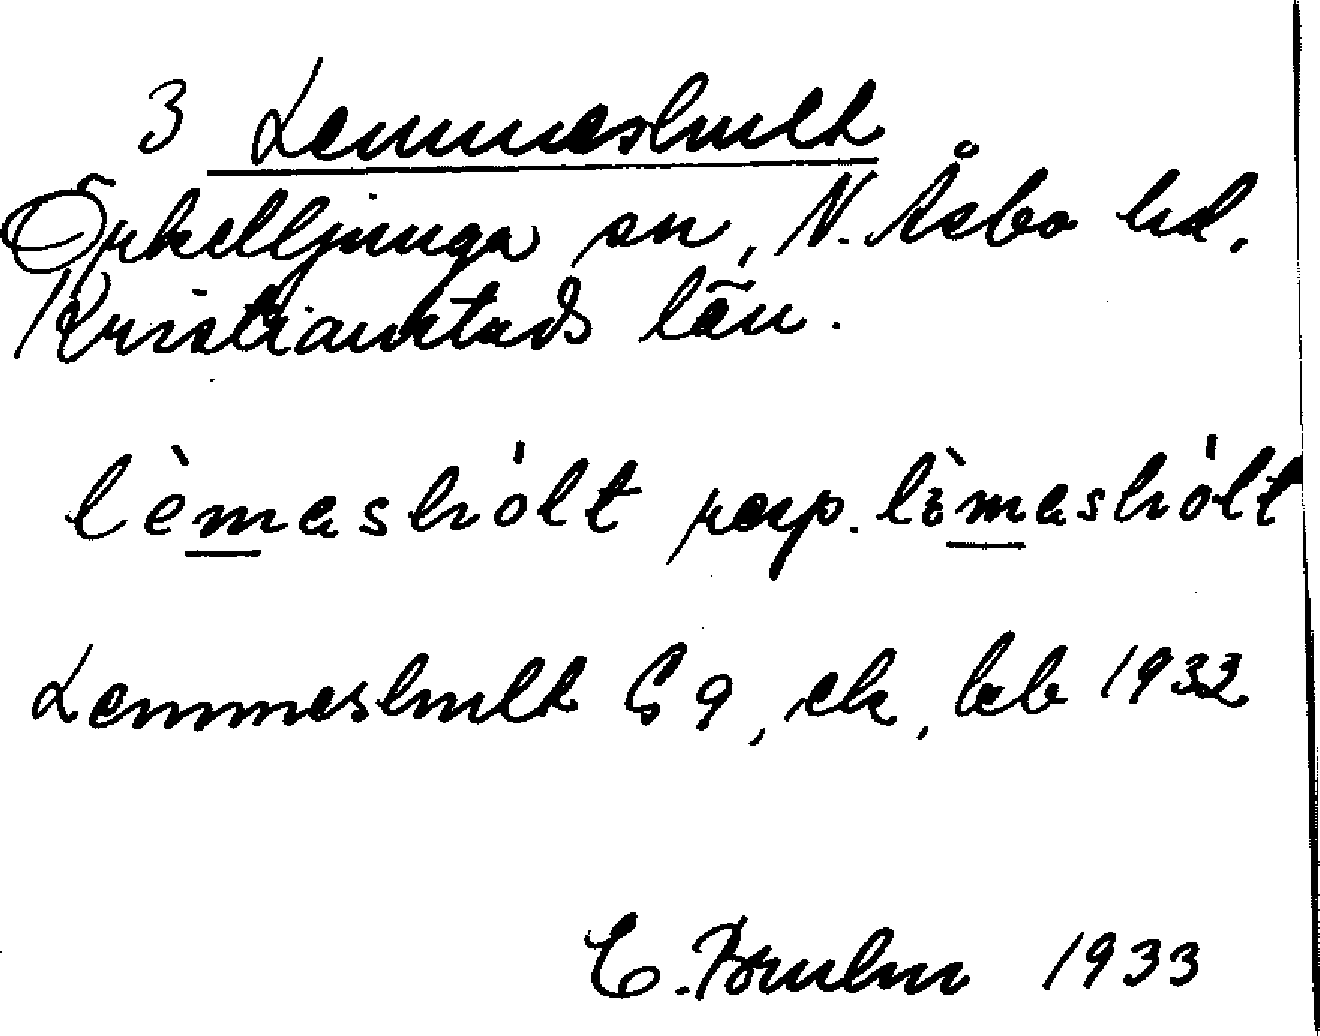 3 Lemmeshult
Örkelljunga sn, N. Åsbo hd.
Kristianstads län.
lèmashólt resp. lìmashólt
Lemmeshult G 9, ek, beb 1932
C. Bruhn 1933